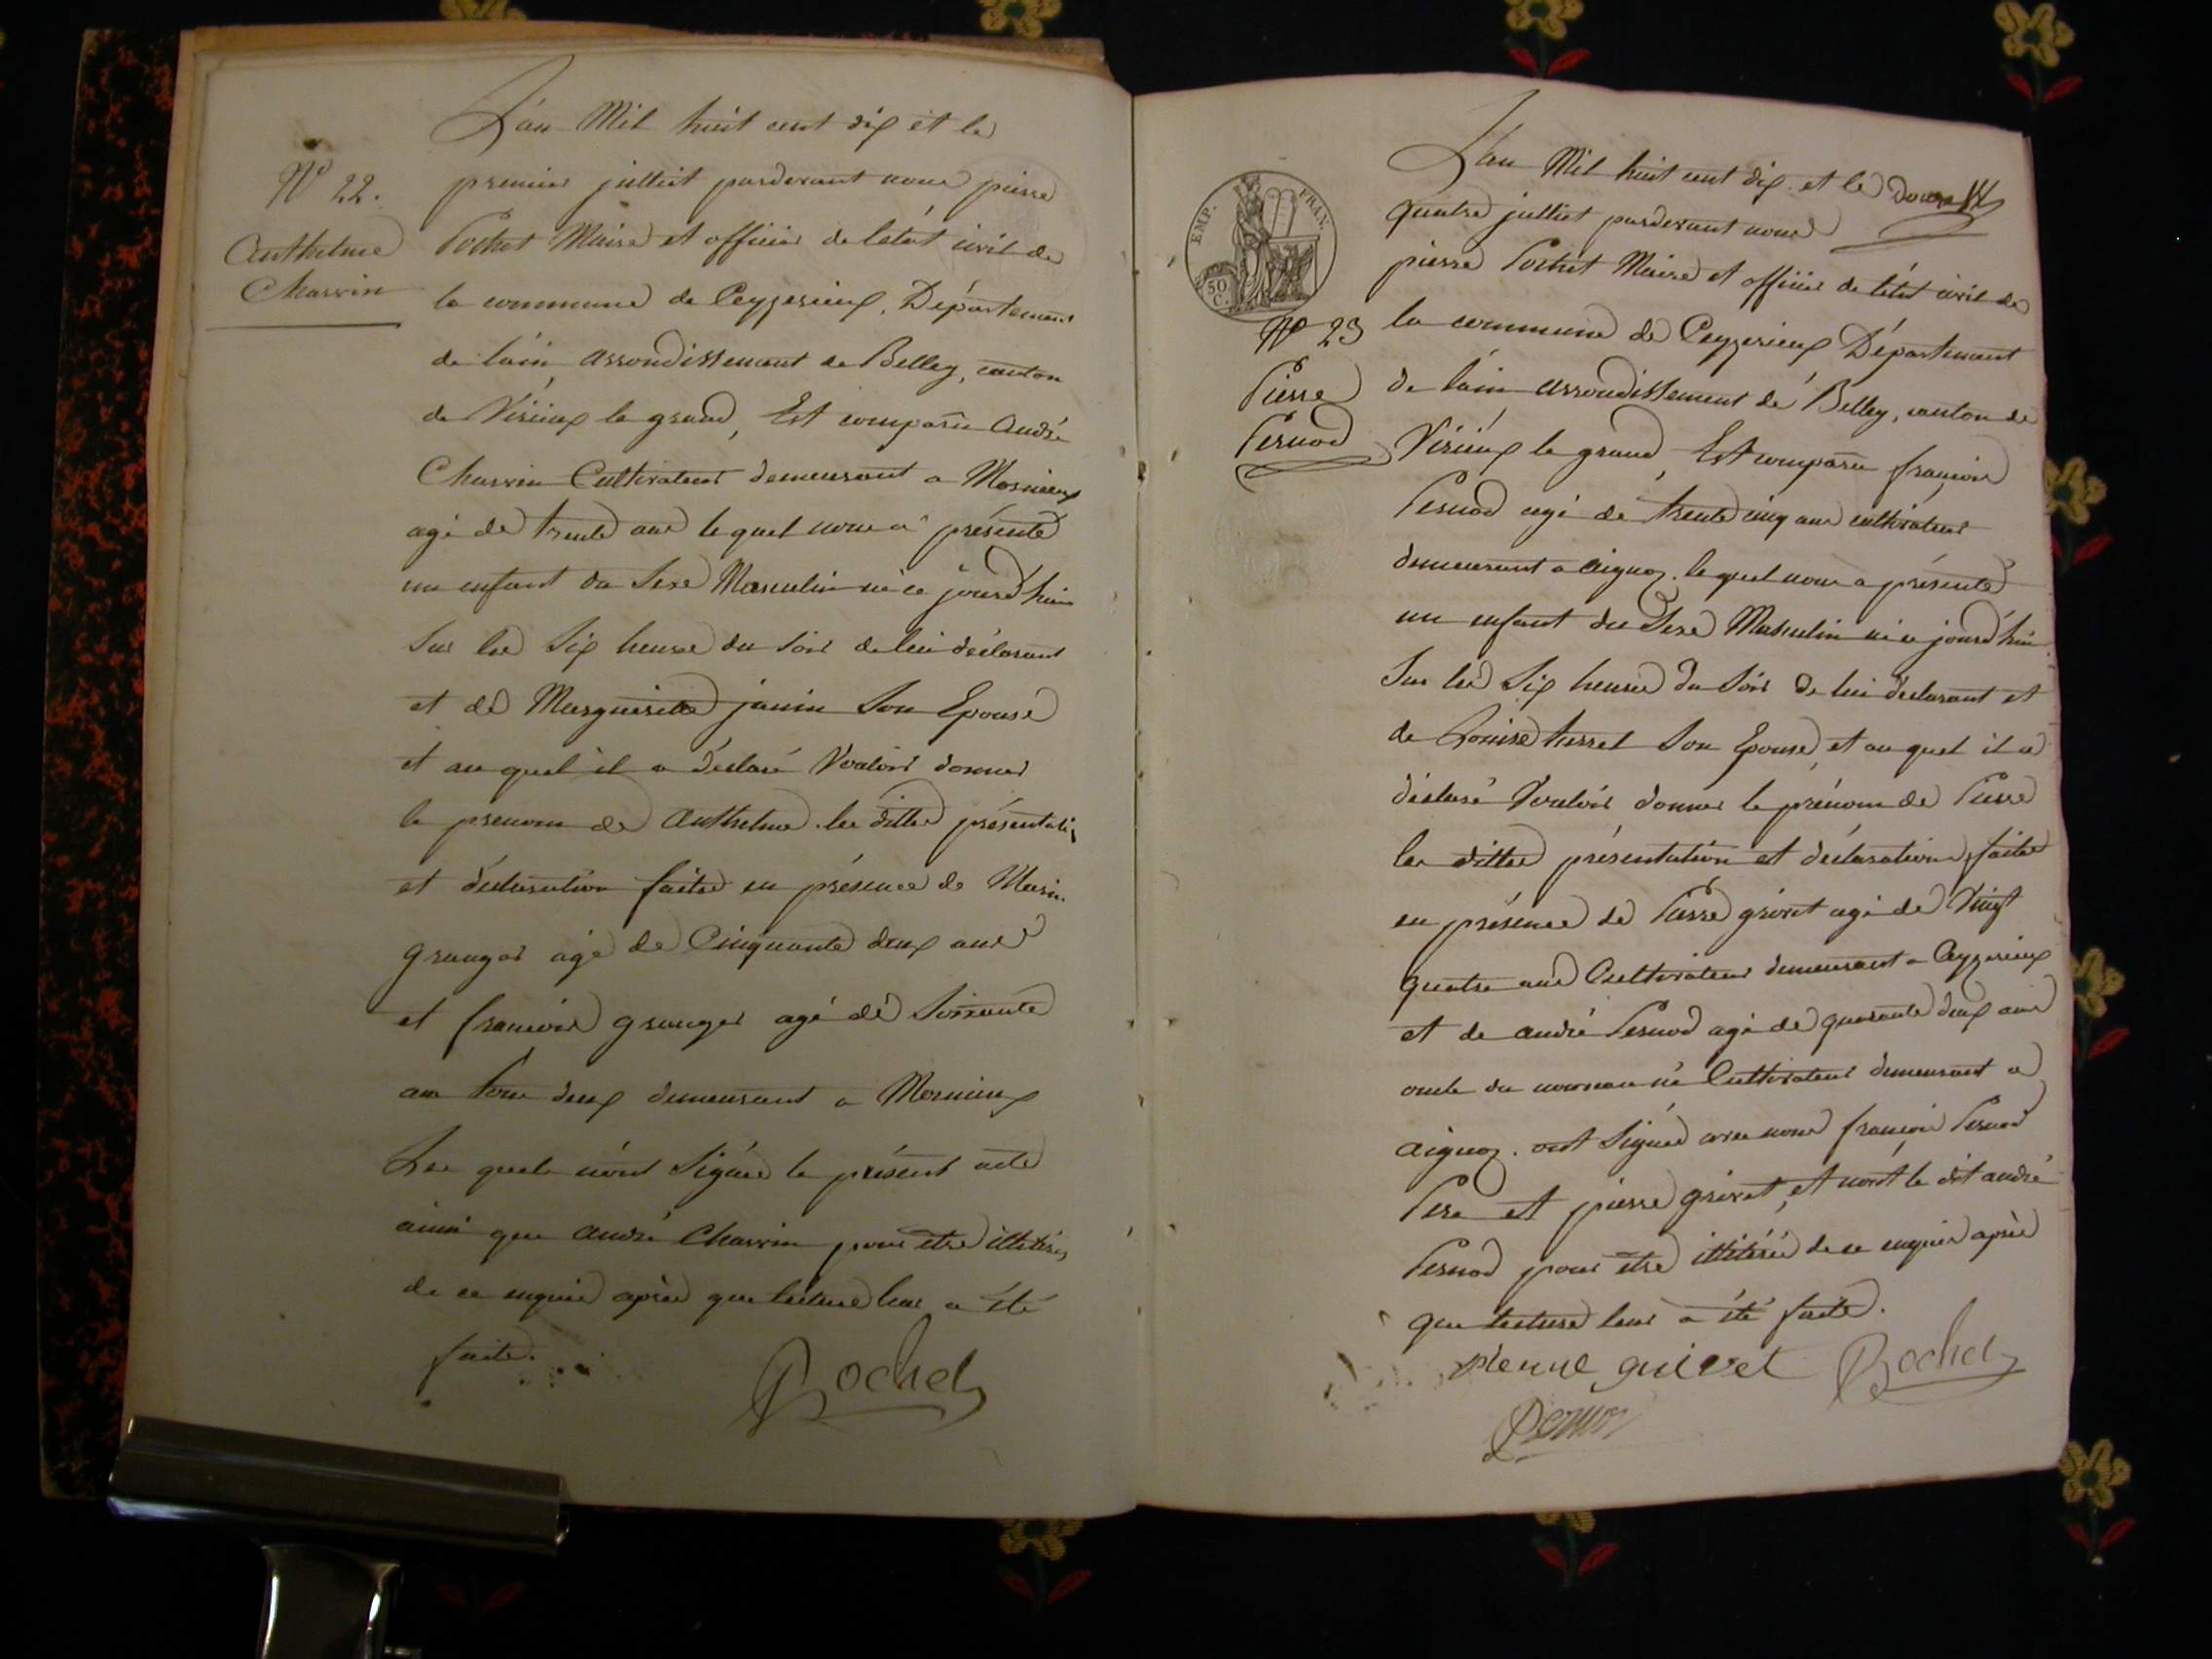 L'an Mil huit cent dix et le
N° 22.
Anthelme
Charvin
premier juillet pardevant nous pierre
Pochet Maire et officier de l'état civil de
la commune de Ceyzerieux, Département
de l'ain, arrondissement de Belley, canton
de Virieux le grand, Est comparu André
Charvin Cultivateur demeurant a Mornieux
agé de trente ans le quel nous a présenté
un enfant du Sexe Masculin né ce jourd'hui
Sur les Six heures du Soir de lui déclarant
et de Marguerite janin Son Epouse
et au quel il a déclaré Vouloir donner
le prenom de Anthelme les dittes présentation
et déclaration faites en présence de Marin
granger agé de Cinquante deux ans
et francois granger agé de Soixante
ans tous deux demeurant a Mornieux
Les quels n'ont Signés le présent acte
ainsi que André Charvin pour etre illitérés
de ce enquis après que lecture leur a été
faite.
Pochet
EMP. FRAN.
50 C.
N° 23
Pierre
Pernod
L'an Mil huit cent dix et le
quatre juillet pardevant nous
pierre Pochet Maire et officier de l'état civil de
la commune de Ceyzerieux Département
de l'ain arrondissement de Belley, canton de
Virieux le grand, Est comparu françois
Pernod agé de trente cinq ans cultivateur
demeurant a aignoz. le quel nous a présenté
un enfant du Sexe Masculin né ce jourd'hui
Sur les Six heures du Soir de lui déclarant et
de Louise Son Epouse, et au quel il a
déclaré Vouloir donner le prénom de Pierre
les dittes présentation et déclaration faites
en présence de Pierre grivet agé de Vingt
quatre ans Cultivateur demeurant a Ceyzerieux
et de andré Pernod agé de quarante deux ans
oncle du nouveau né Cultivateur demeurant a
aignoz. ont Signés avec nous françois Pernod
Pere et pierre grivet, et non le dit andré
Pernod pour etre illitéré de ce enquis après
que lecture leur a été faite.
pierre grivet Pochet
Pernod